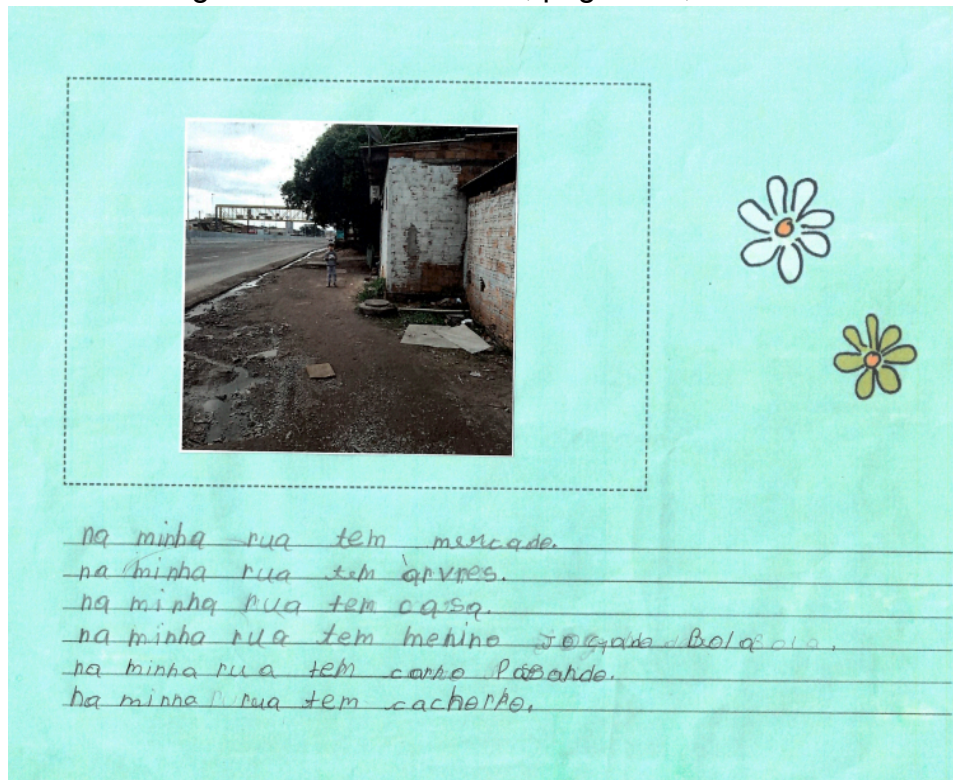 na minha rua tem mercado.
na minha rua tem àrvres.
na minha rua tem casa.
na minha rua tem menino Jogado Bola
na minha rua tem carro Pasando.
na minha rua tem cachorro.